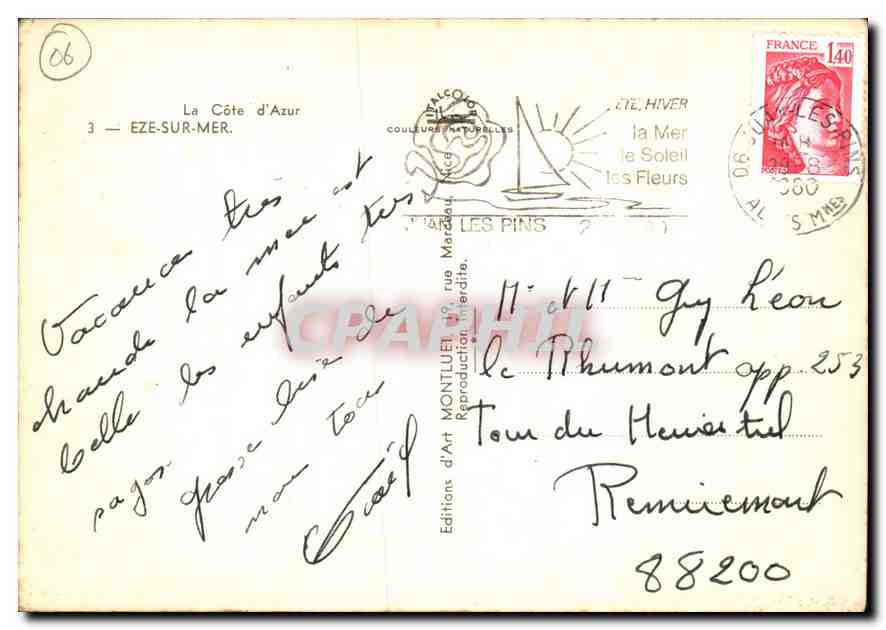 06
La Côte d'Azur
3 — EZE-SUR-MER.
ITALCOLOR
COULEURS NATURELLES
ETE, HIVER
la Mer
le Soleil
les Fleurs
JUAN LES PINS
FRANCE
1,40
POSTES
06 JUAN-LES-PINS
1980
ALPES MMES
Vacances très
chaude la mer est
belle les enfants très
sages
grosse bise de
nous tous
Editions d'Art MONTLUET 19, rue Marceau, Nice
Reproduction interdite.
CPAPHIL
Mr et Mme Guy Léon
le Rhumont app 253
Tour du
Remiremont
88200